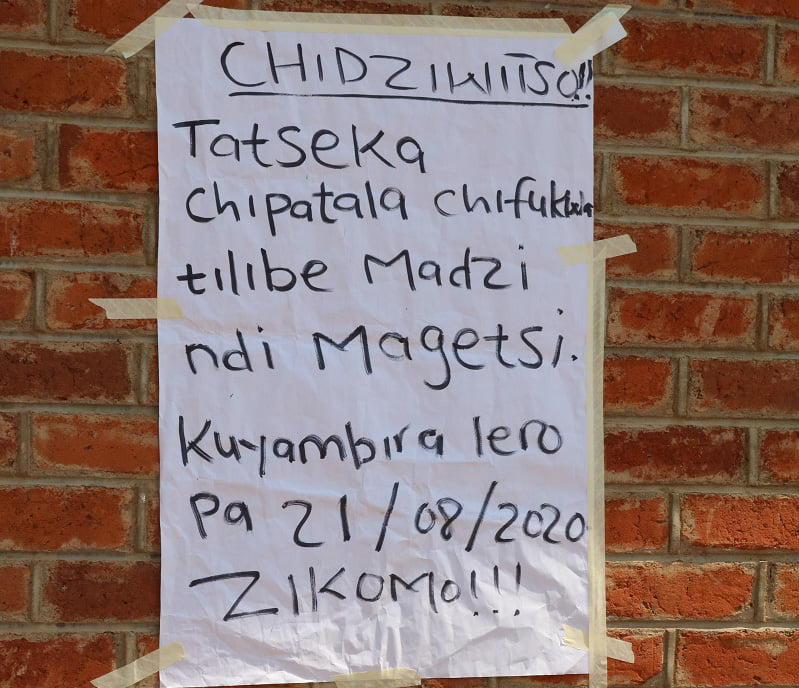 CHIDZIWITSO!!
Tatseka
chipatala chifukwa
tilibe Madzi
ndi Magetsi.
Kuyambira lero
pa 21/08/2020
ZIKOMO!!!